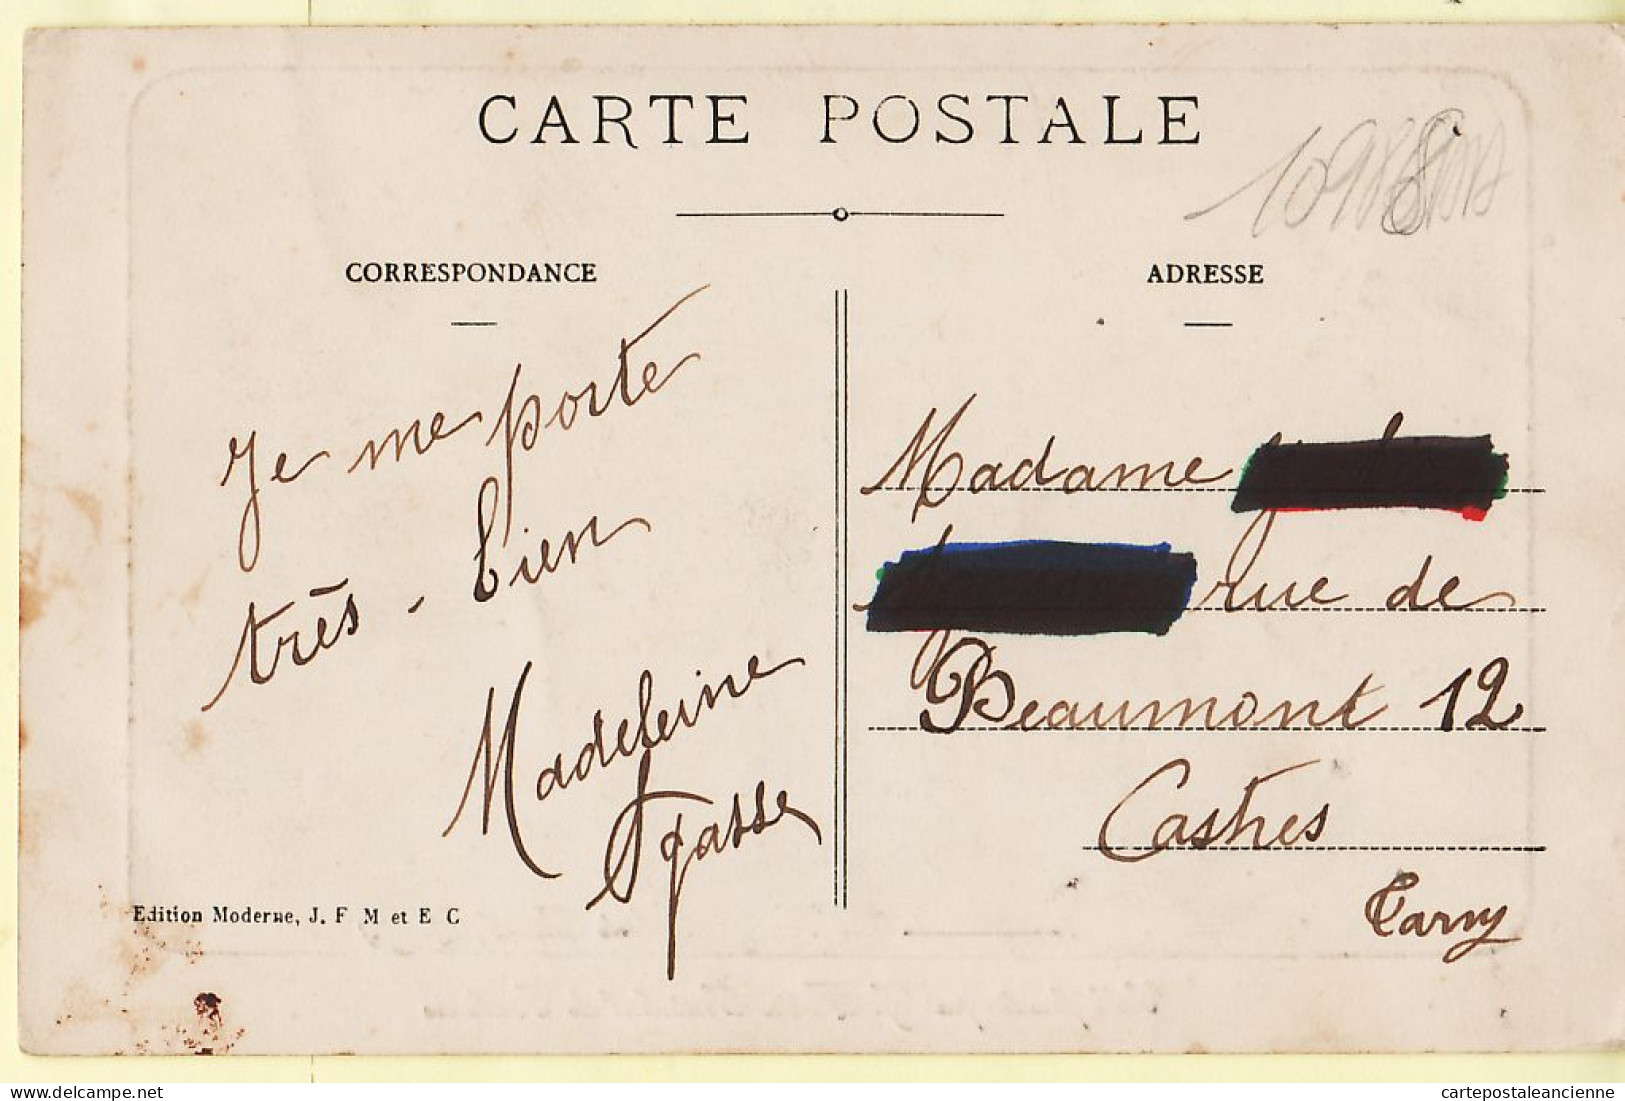 CARTE POSTALE
CORRESPONDANCE
Je me porte
très - bien
Madeleine
Edition Moderne, J. F M et E C
ADRESSE
Madame
rue de
Beaumont 12
Castres
Tarn
delcampe.net
cartepostaleancienne